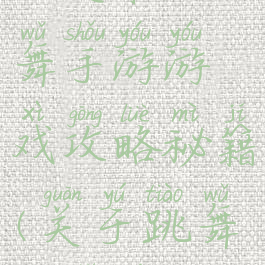 wǔ shǒu yóu yóu
舞手游游
xì gōng lüè mì jí
戏攻略秘籍
guān yú tiào wǔ
(关于跳舞